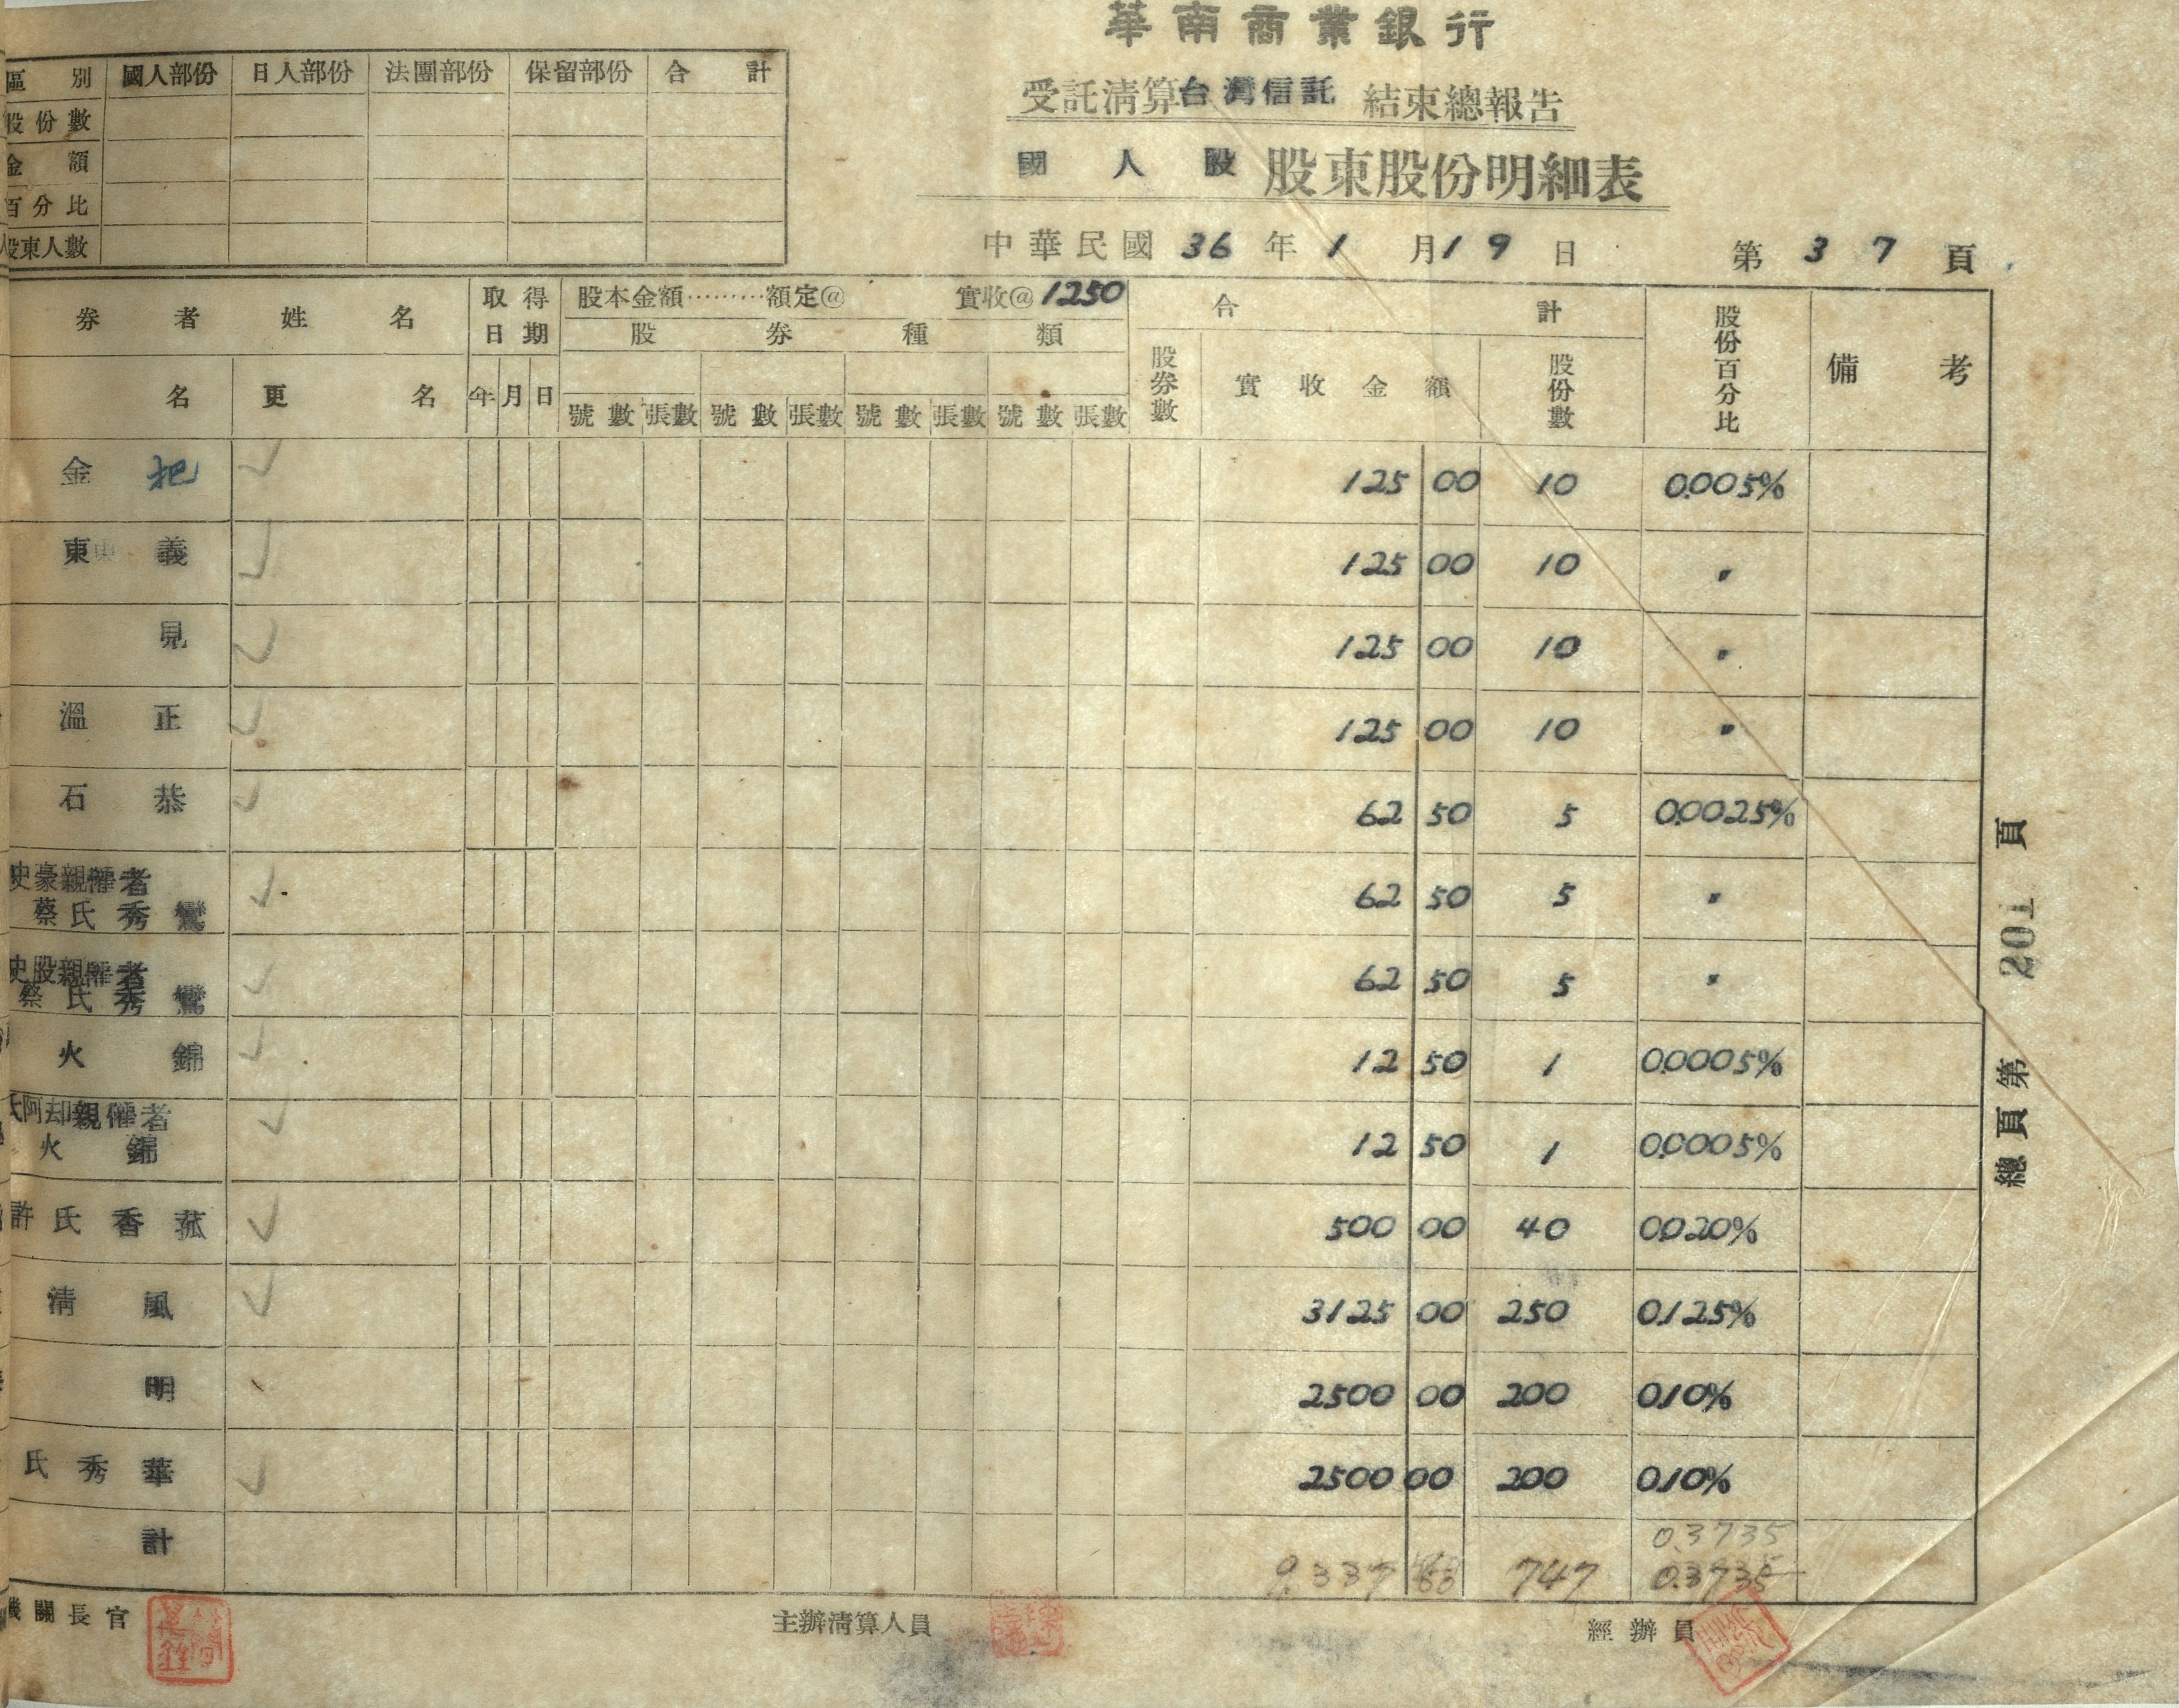 華南商業銀行
受託清算台灣信託 結束總報告
國人股 股東股份明細表
中華民國36年1月19日 第37頁
區別 國人部份 日人部份 法團部份 保留部份 合計
股份數
金額
百分比
股東人數
券者姓名 取得日期 股本金額………額定@ 實收@1250 合計 股份百分比 備考
股券種類
名 更名 年 月 日 號數 張數 號數 張數 號數 張數 號數 張數 股券數 實收金額 股份數
金 125 00 10 0.005%
東義 125 00 10 〃
見 125 00 10 〃
溫正 125 00 10 〃
石恭 62 50 5 0.0025%
史豪親權者
蔡氏秀鸞 62 50 5 〃
史股親權者
蔡氏秀鸞 62 50 5 〃
火錦 12 50 1 0.0005%
阿却親權者
火錦 12 50 1 0.0005%
許氏香菰 500 00 40 0.020%
清風 3125 00 250 0.125%
明 2500 00 200 0.10%
氏秀華 2500 00 200 0.10%
0.3735
計 9.337 747 0.3735
機關長官 主辦清算人員 經辦員
總頁第 201 頁